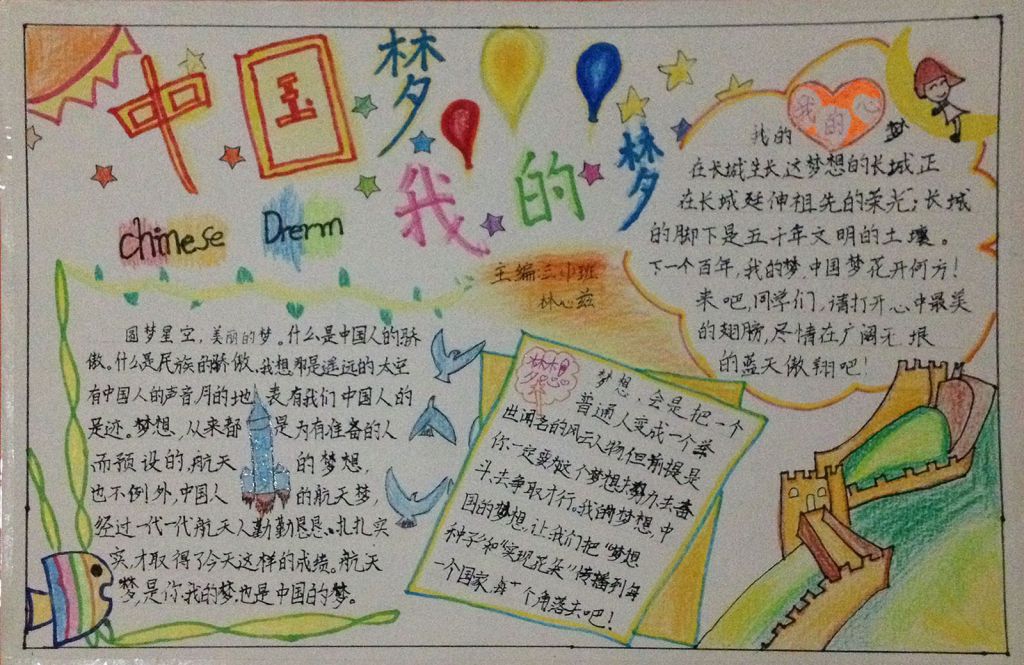 中国梦
我的梦
chinese Drem
主编三中班
林心兹
圆梦星空，美丽的梦。什么是中国人的骄
傲。什么是民族的骄傲，我想那是遥远的太空
有中国人的声音，月的地表有我们中国人的
足迹。梦想，从来都是为有准备的人
而预设的，航天的梦想，
也不例外，中国人的航天梦，
经过一代一代航天人勤勤恳恳、扎扎实
实，才取得了今天这样的成绩。航天
梦，是你我的梦，也是中国的梦。
梦想，会是把一个
普通人变成一个举
世闻名的风云人物，但前提是
你一定要做这个梦想，努力去奋
斗、去争取才行。我的梦想，中
国的梦想，让我们把“梦想
种子”和“实现花朵”传播到每
一个国家，每一个角落去吧！
我的心
我的梦
在长城生长，这梦想的长城正
在长城延伸祖先的荣光；长城
的脚下是五千年文明的土壤。
下一个百年，我的梦，中国梦花开何方！
来吧，同学们，请打开心中最美
的翅膀，尽情在广阔无垠
的蓝天傲翔吧！